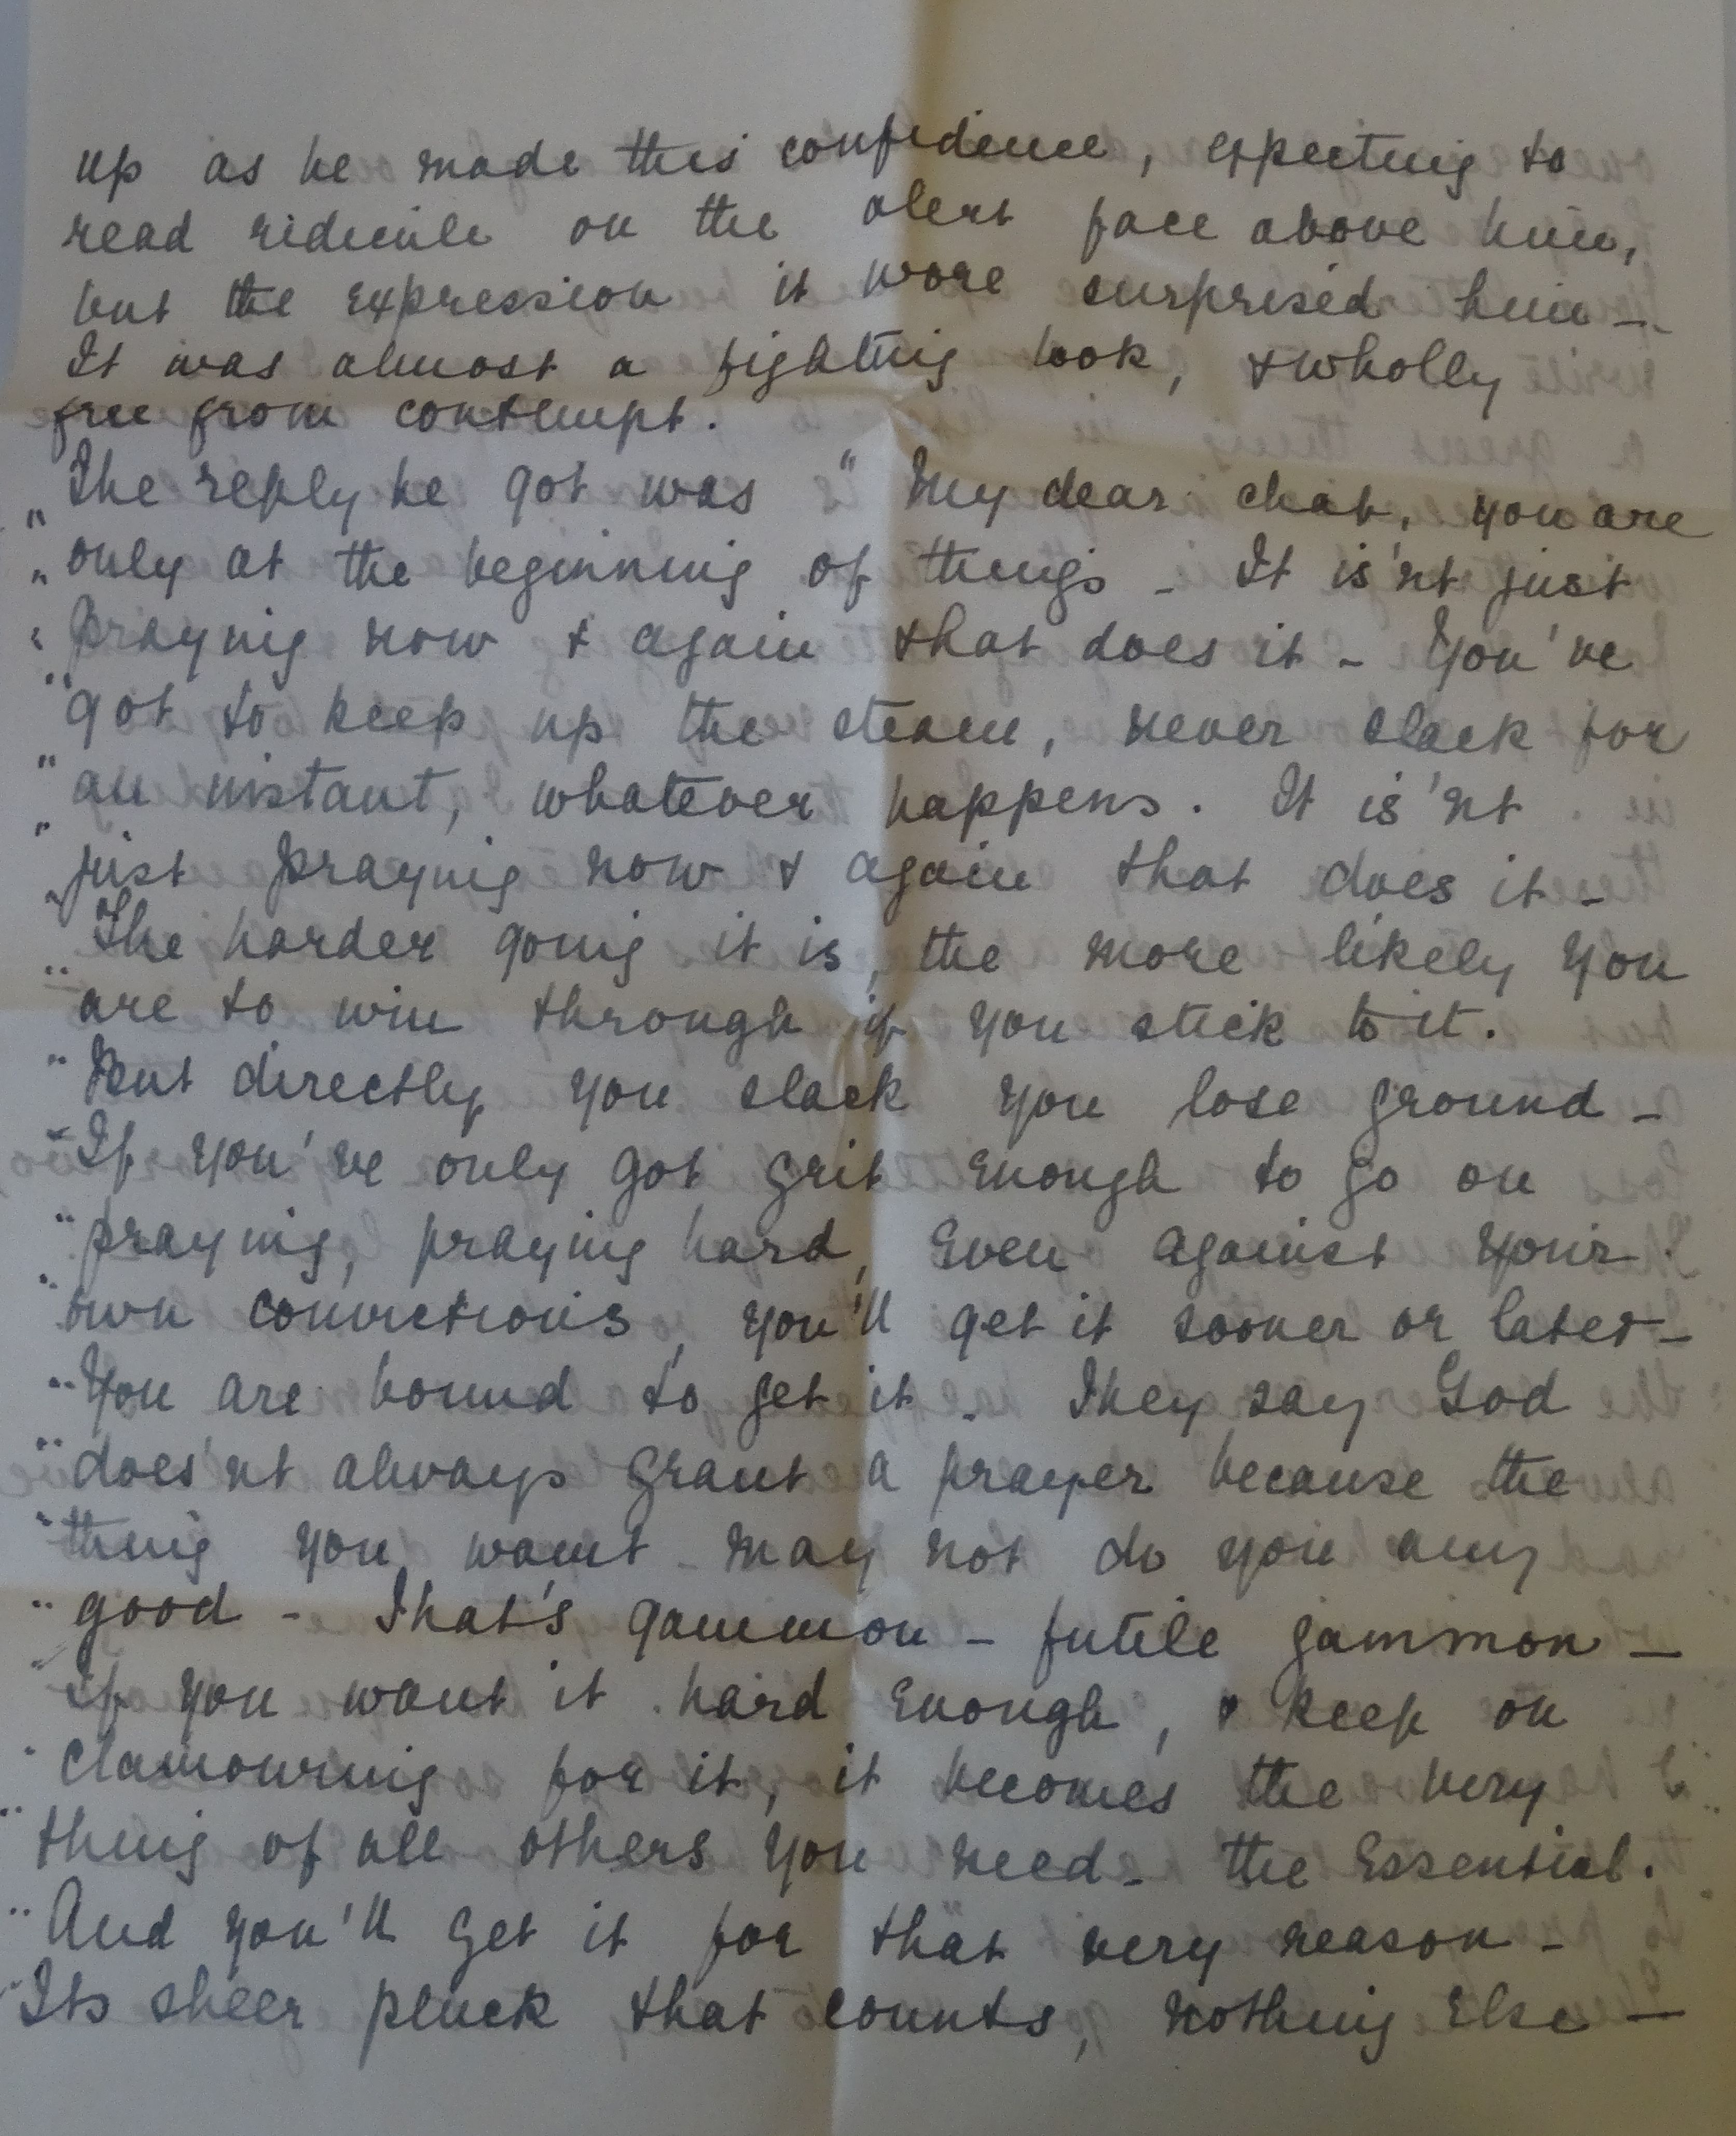 up as he made this confidence, expecting to
read ridicule on the alert face above him,
but the expression it wore surprised him -
It was almost a fighting look, & wholly
free from contempt.
"The reply he got was "My dear chap, you are
"only at the beginning of things - It is'nt just
"praying now & again that does it - You've
"got to keep up the steam, never slack for
"an instant, whatever happens. It is'nt
"just praying now & again that does it -
"The harder going it is, the more likely you
"are to win through if you stick to it.
"But directly you slack you lose ground -
"If you've only got grit enough to go on
"praying, praying hard, even against your
"own convictions, you'll get it sooner or later -
"You are bound to get it - They say God
"does'nt always grant a prayer because the
"thing you want may not do you any
"good - That's gammon - futile gammon -
"If you want it hard enough, & keep on
"clamouring for it, it becomes the very
"thing of all others you need - the Essential.
"And you'll get it for that very reason -
"Its sheer pluck that counts, nothing else -